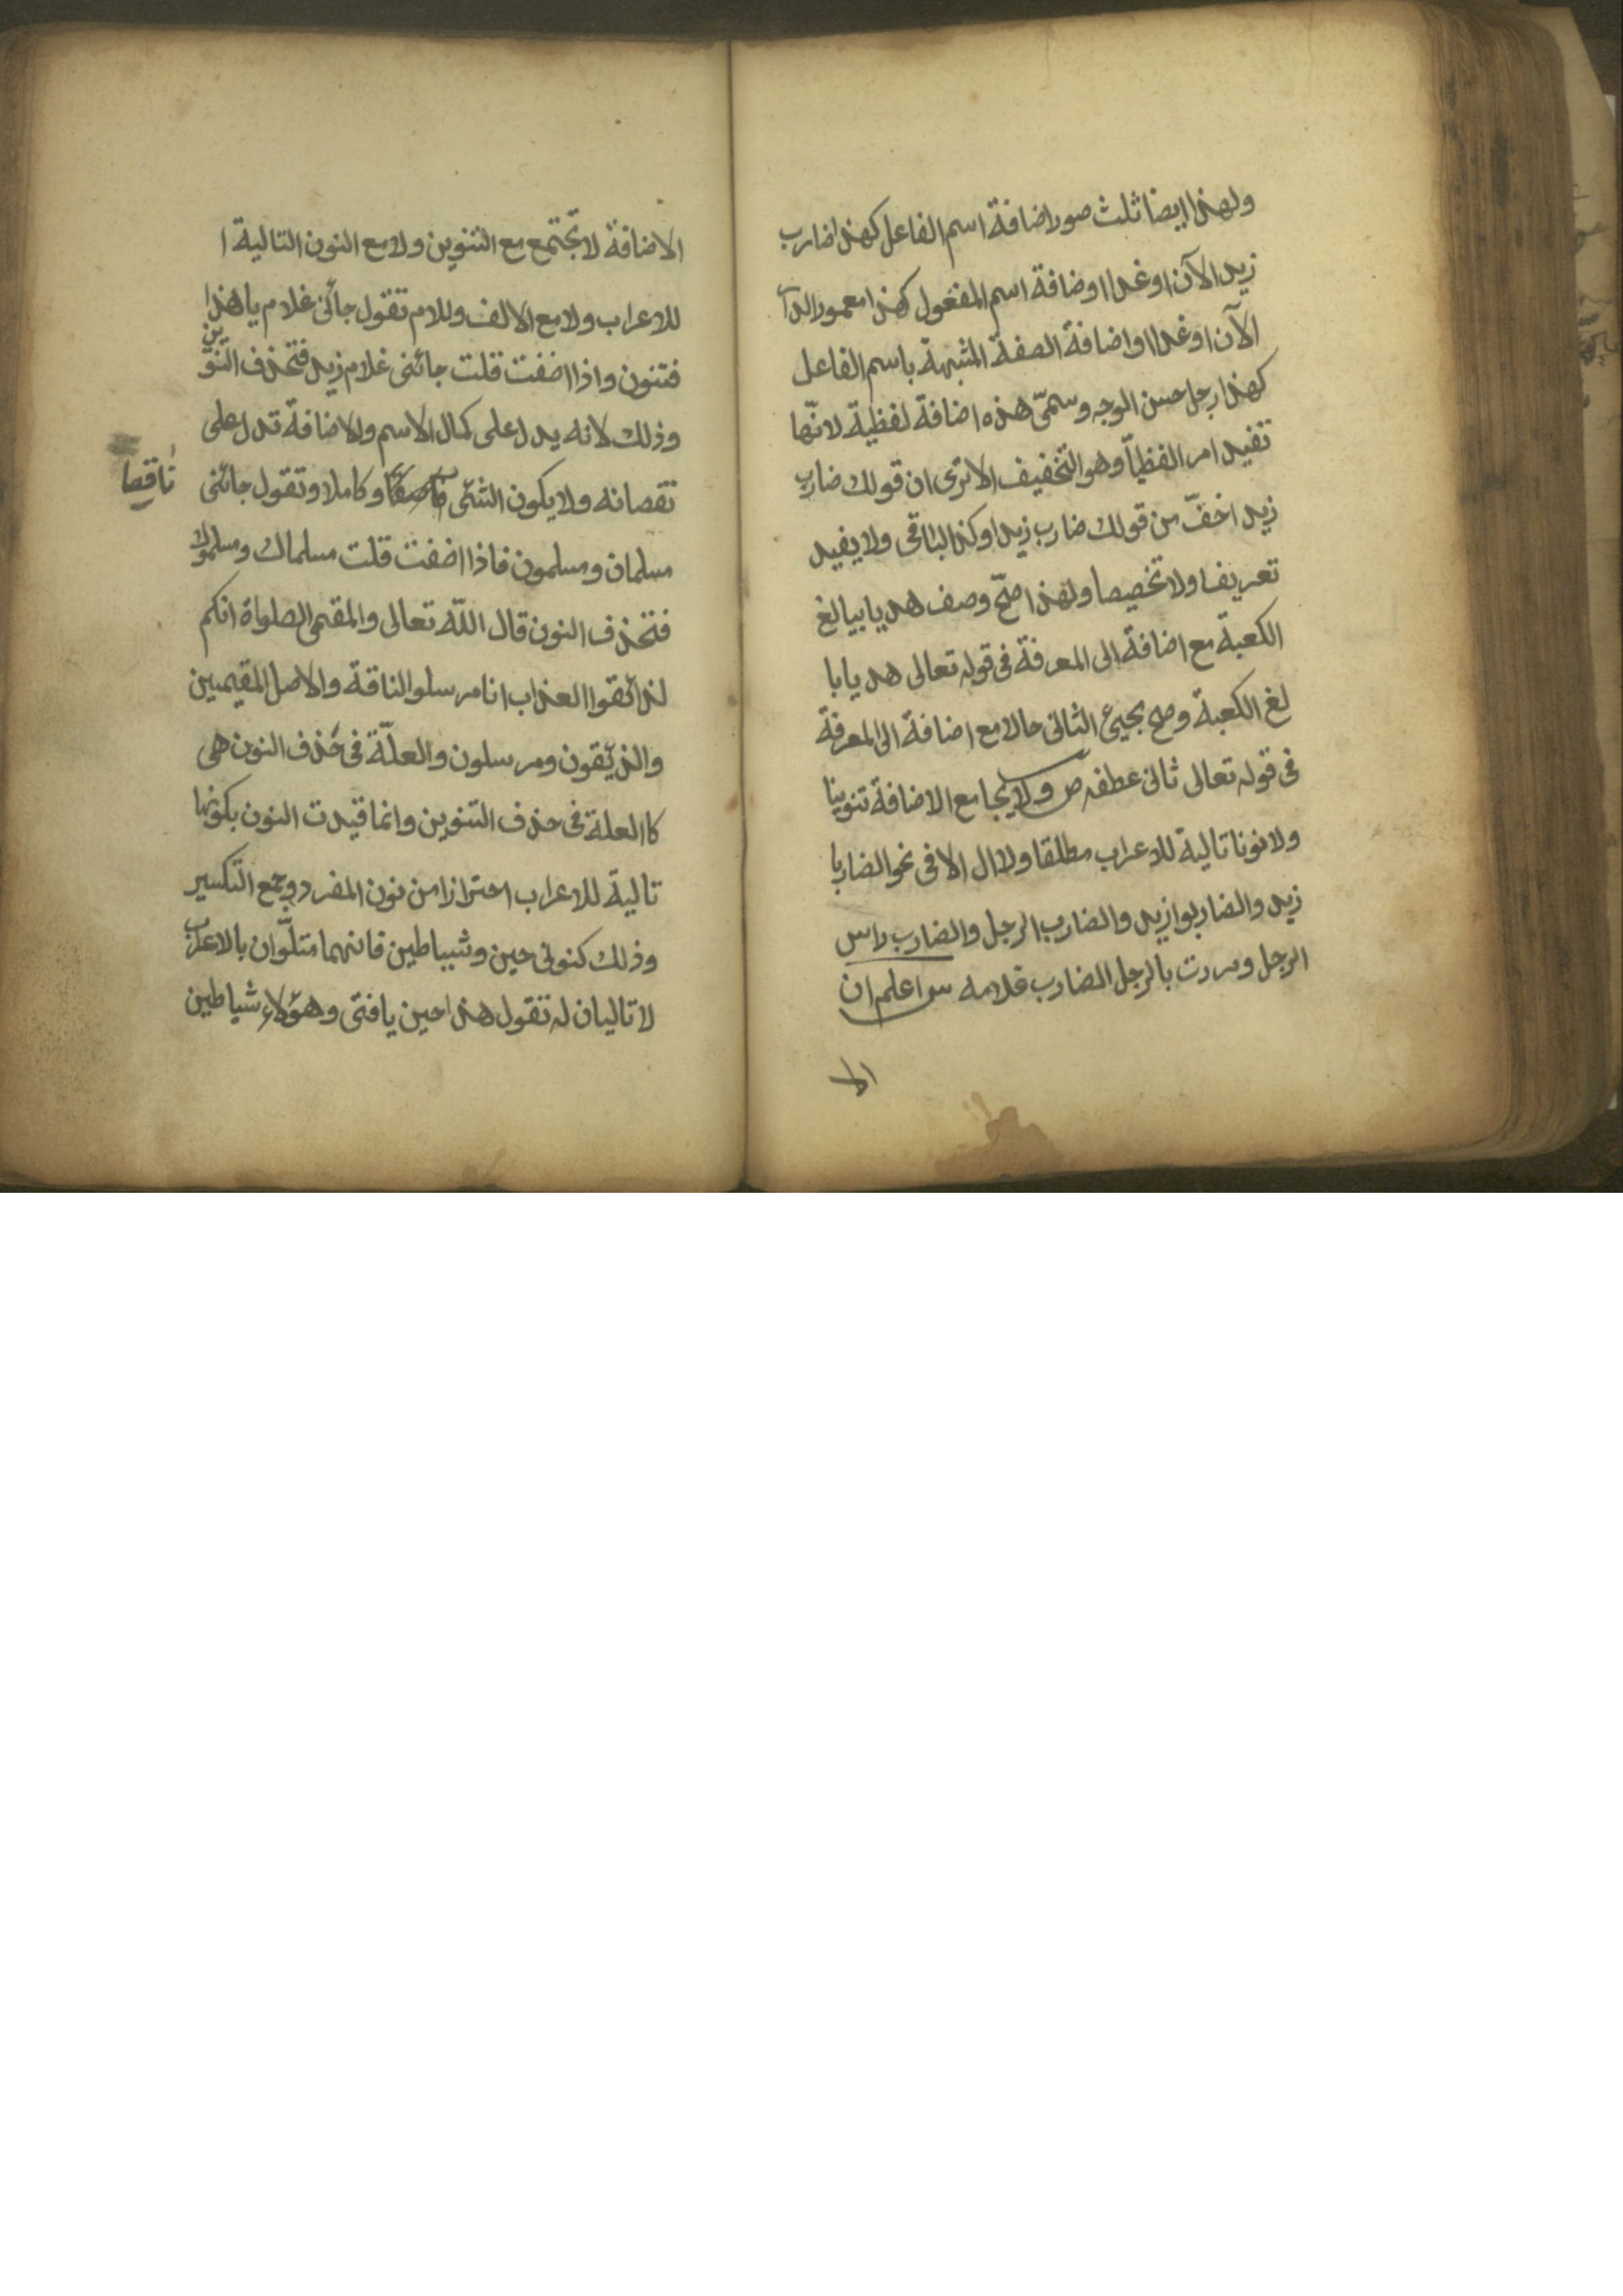 ولهذا ايضا ثلث صور اضافة اسم الفاعل كهذا ضارب
زيد الآن او غدا اوضافة اسم المفعول كهذا معمور الدار
الآن او غدا او اضافة الصفة المشبهة باسم الفاعل
كهذا رجل حسن الوجه وسمّى هذه اضافة لفظية لانّها
تفيد امر الفظياّ وهو التخفيف الا ترى ان قولك ضارب
زيد اخفّ من قولك ضارب زيدا وكذا الباقى ولا يفيد
تعريفا ولا تخصيصا ولهذا صحّ وصف هديا ببالغ
الكعبة مع اضافة الى المعرفة فى قوله تعالى هديا با
لغ الكعبة وصح مجيئ الثانى حالا مع اضافة الى المعرفة
فى قوله تعالى ثانى عطفه ص ولا يجامع الاضافة تنوينا
ولا نونا تالية للاعراب مطلقا ولا ال الا فى نحو الضاربا
زيد والضاربوا زيد والضارب الرجل والضارب راس
الرجل ومررت بالرجل الضارب غلامه س اعلم ان
الا
الاضافة لا تجتمع مع التنوين ولا مع النون التالية ا
للاعراب ولا مع الالف وللام تقول جائنى غلام يا هذا
فتنون واذا اضفت قلت جائنى غلام زيد فتحذف التنوين
وذلك لانه يدل على كمال الاسم والاضافة تدل على
نقصانه ولا يكون الشئ وكاملا وتقول جائنى
ناقصا
مسلمان ومسلمون فاذا اضفت قلت مسلماك ومسلموك
فتحذف النون قال اللّه تعالى والمقيمى الصلواة انكم
لذائقوا العذاب انا مرسلوا الناقة والاصل المقيميين
والذئقون ومرسلون والعلّة فى حذف النون هى
كاالعلة فى حذف التنوين وانما قيدت النون بكونها
تالية للاعراب احترازا من نون المفرد وجمع التكسير
وذلك كنونى حين وشيباطين فانهما متلّوان بالاعراب
لا تاليان له تقول هذا حين يافتى وهؤلاء شياطين